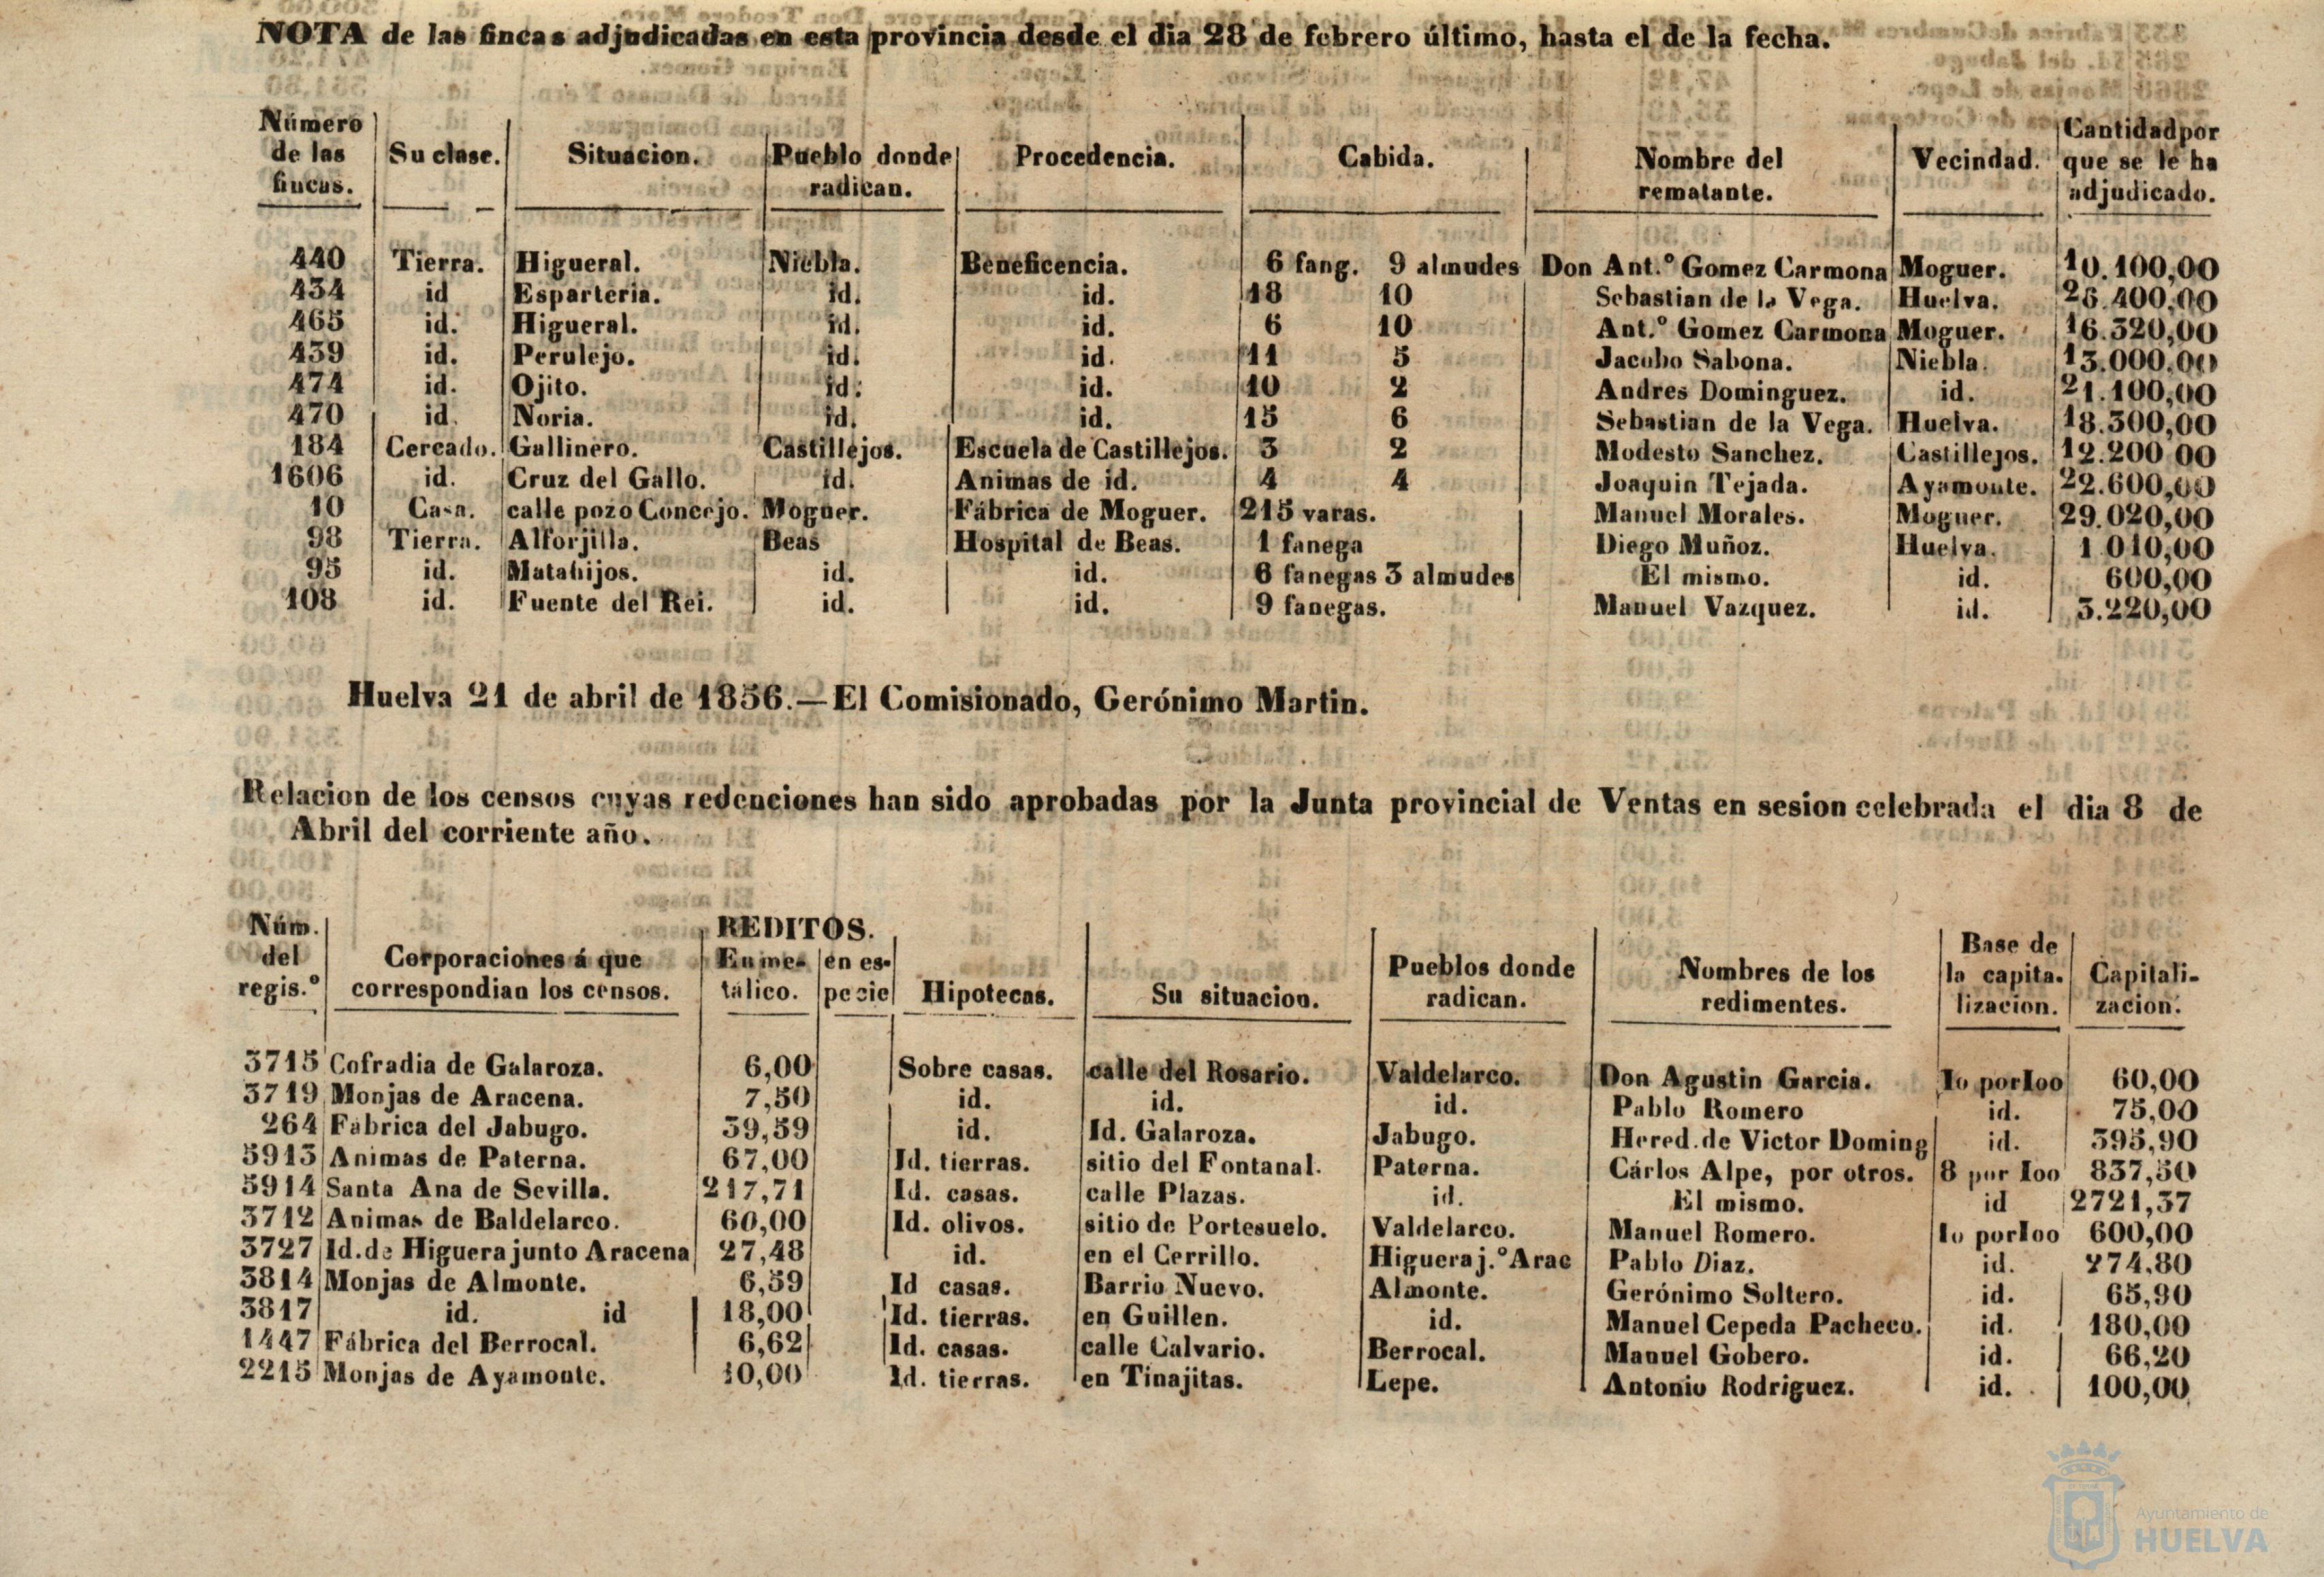 NOTA de las fincas adjudicadas en esta provincia desde el dia 28 de febrero último, hasta el de la fecha.
Número de las fincas. Su clase. Situacion. Pueblo donde radican. Procedencia. Cabida. Nombre del rematante. Vecindad. Cantidad por que se le ha adjudicado.
440 Tierra. Higueral. Niebla. Beneficencia. 6 fang. 9 almudes Don Ant.º Gomez Carmona Moguer. 10.100,00
434 id Esparteria. id. id. 18 10 Sebastian de la Vega. Huelva. 26.400,00
465 id. Higueral. id. id. 6 10 Ant.º Gomez Carmona Moguer. 16.320,00
439 id. Perulejo. id. id. 11 5 Jacobo Sabona. Niebla. 13.000,00
474 id. Ojito. id. id. 10 2 Andres Dominguez. id. 21.100,00
470 id. Noria. id. id. 15 6 Sebastian de la Vega. Huelva. 18.300,00
184 Cercado. Gallinero. Castillejos. Escuela de Castillejos. 3 2 Modesto Sanchez. Castillejos. 12.200 00
1606 id. Cruz del Gallo. id. Animas de id. 4 4 Joaquin Tejada. Ayamonte. 22.600,00
10 Casa. calle pozo Concejo. Moguer. Fábrica de Moguer. 215 varas. Manuel Morales. Moguer. 29.020,00
98 Tierra. Alforjilla. Beas Hospital de Beas. 1 fanega Diego Muñoz. Huelva. 1 010,00
95 id. Matahijos. id. id. 6 fanegas 3 almudes El mismo. id. 600,00
108 id. Fuente del Rei. id. id. 9 fanegas. Manuel Vazquez. id. 3.220,00
Huelva 21 de abril de 1856.—El Comisionado, Gerónimo Martin.
Relacion de los censos cuyas redenciones han sido aprobadas por la Junta provincial de Ventas en sesion celebrada el dia 8 de
Abril del corriente año.
Núm. del regis.º Corporaciones á que correspondian los censos. REDITOS. En me- tálico. en es- pecie Hipotecas. Su situacion. Pueblos donde radican. Nombres de los redimentes. Base de la capita. lizacion. Capitali- zacion.
3715 Cofradia de Galaroza. 6,00 Sobre casas. calle del Rosario. Valdelarco. Don Agustin Garcia. Io porIoo 60,00
3719 Monjas de Aracena. 7,50 id. id. id. Pablo Romero id. 75,00
264 Fabrica del Jabugo. 39,59 id. Id. Galaroza. Jabugo. Hered. de Victor Doming id. 395,90
5913 Animas de Paterna. 67,00 Id. tierras. sitio del Fontanal. Paterna. Cárlos Alpe, por otros. 8 por Ioo 837,50
5914 Santa Ana de Sevilla. 217,71 Id. casas. calle Plazas. id. El mismo. id 2721,37
3712 Animas de Baldelarco. 60,00 Id. olivos. sitio de Portesuelo. Valdelarco. Manuel Romero. Io porIoo 600,00
3727 Id. de Higuera junto Aracena 27,48 id. en el Cerrillo. Higuera j.º Arac Pablo Diaz. id. 274,80
3814 Monjas de Almonte. 6,59 Id casas. Barrio Nuevo. Almonte. Gerónimo Soltero. id. 65,90
3817 id. id 18,00 Id. tierras. en Guillen. id. Manuel Cepeda Pacheco. id. 180,00
1447 Fábrica del Berrocal. 6,62 Id. casas. calle Calvario. Berrocal. Manuel Gobero. id. 66,20
2215 Monjas de Ayamonte. 10,00 Id. tierras. en Tinajitas. Lepe. Antonio Rodriguez. id. 100,00
Ayuntamiento de
HUELVA